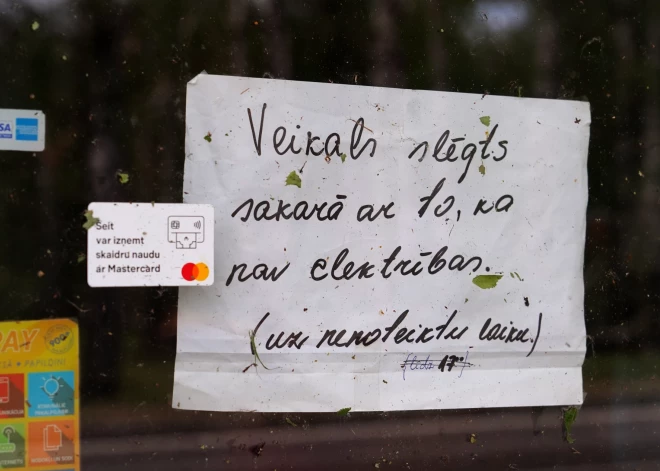 VISA
Veikals slēgts
sakarā ar to, ka
nav elektrības.
(uz nenoteiktu laiku.)
(līdz 17⁰⁰)
Šeit
var izņemt
skaidru naudu
ar Mastercard
PAY
PAPILDINI